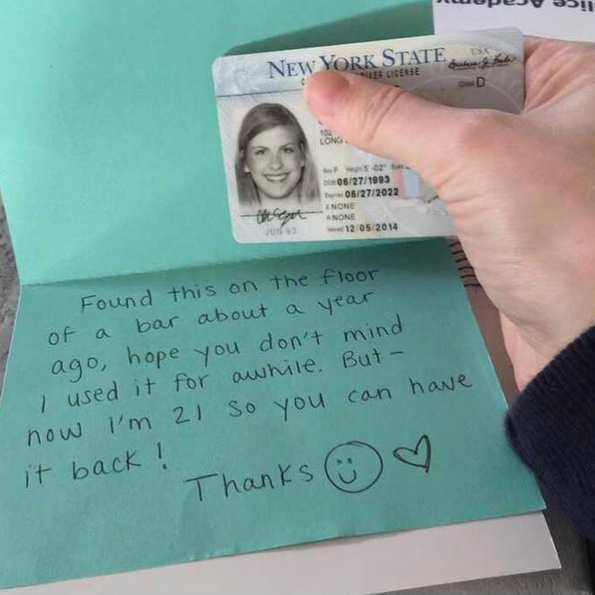 lice Academy
NEW YORK STATE
USA
LICENSE
D
LONG
Sex F Height 5'-02"
DOB 06/27/1993
Expires 06/27/2022
E NONE
R NONE
Issued 12/05/2014
JUN 93
Found this on the floor
of a bar about a year
ago, hope you don't mind
I used it for awhile. But-
now I'm 21 so you can have
it back!
Thanks